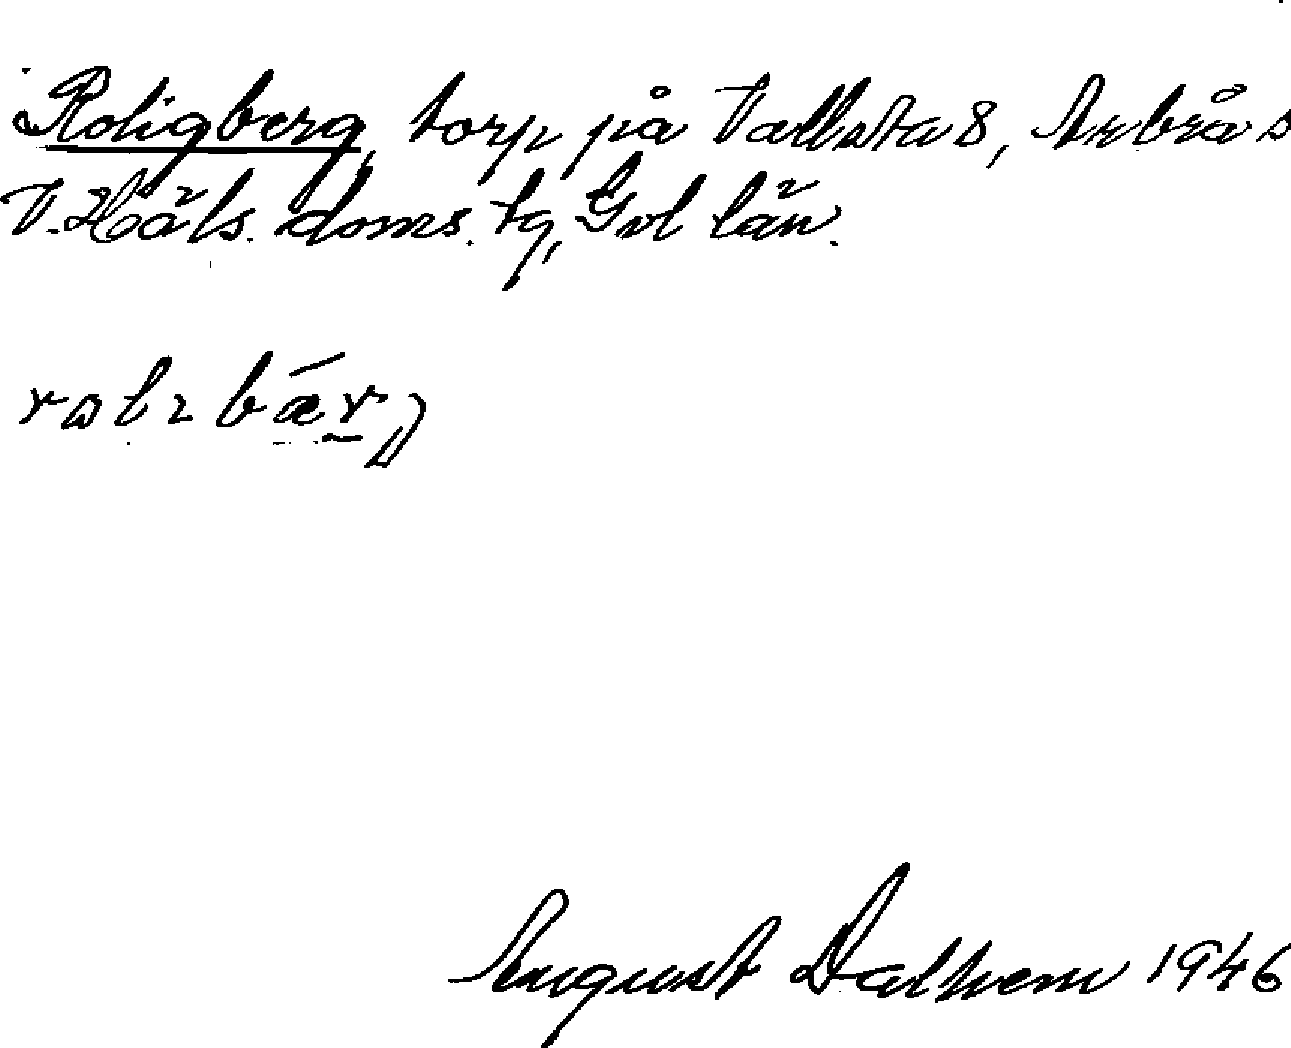 Roligberg, torp på Vallsta 8, Arbrå s
V. Häls. doms. tg, Gvl län.
August Dalhem 1946